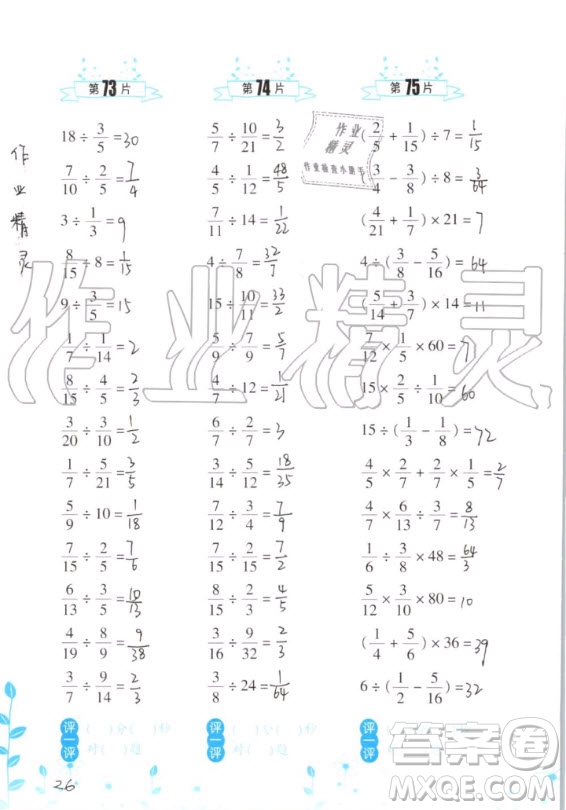 第73片
18÷3/5=30
7/10÷2/5=7/4
3÷1/3=9
8/15÷8=1/15
9÷3/5=15
1/7÷1/14=2
8/15÷4/5=2/3
3/20÷3/10=1/2
1/7÷5/21=3/5
5/9÷10=1/18
7/15÷2/5=7/6
6/13÷3/5=10/13
4/19÷8/9=9/38
3/7÷9/14=2/3
评一评
( )分( )秒
对( )题
第74片
5/7÷10/21=3/2
4/5÷1/12=48/5
7/11÷14=1/22
4÷7/8=32/7
=33/2
5/9÷7/9=5/7
4/7÷12=1/21
6/7÷2/7=3
3/14÷5/12=18/35
1/3÷3/7=7/9
7/15÷2/15=7/2
8/15÷2/3=4/5
3/16÷9/32=2/3
3/8÷24=1/64
评一评
( )分( )秒
对( )题
第75片
(2/5+1/15)÷7=1/15
(3/4-3/8)÷8=3/64
×21=7
4÷(3/8-5/16)=64
(5/14+3/7)×14=11
×60=7
15×2/5÷1/10=60
15÷(1/3-1/8)=72
4/5×2/7+2/7×1/5=2/7
4/7×6/13÷3/7=8/13
1/6÷3/8×48=64/3
5/12×3/10×80=10
(1/4+5/6)×36=39
6÷(1/2-5/16)=32
评一评
作业精灵
作业精灵
作业检查小助手
作业精灵
26
答案圈
MXQE.COM